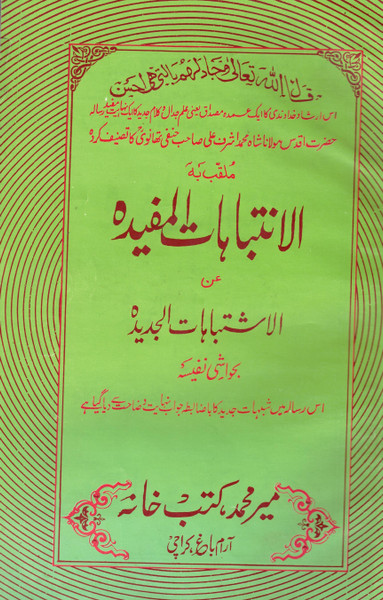 قال الله تعالى وجادلهم بالتي هي احسن
اس ارشاد خداوندی کا ایک عمدہ مصداق یعنی علم جدال و کلام جدید کا ایک نہایت مفید رسالہ
حضرت اقدس مولانا شاہ محمد اشرف علی صاحب حنفی تھانوی کا تصنیف کردہ
ملقب بہ
الانتباہات المفیدہ
عن
الاشتباہات الجدیدہ
بحواشی نفیسہ
اس رسالہ میں شبہات جدیدہ کا باضابطہ جواب نہایت وضاحت سے دیا گیا ہے
میر محمد، کتب خانہ
آرام باغ، کراچی